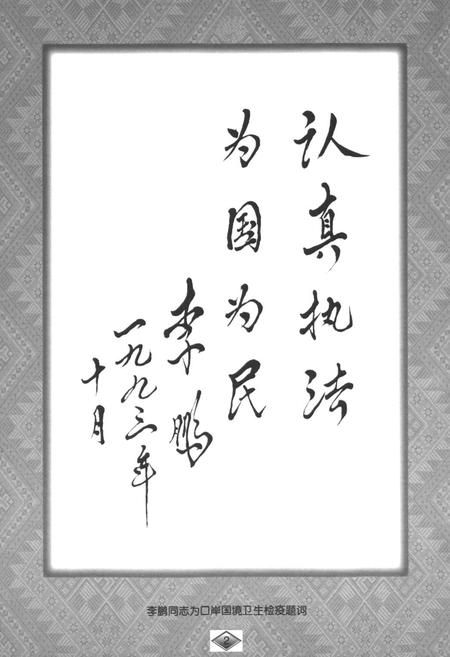 认真执法
为国为民
李鹏
一九九三年
十月
李鹏同志为口岸国境卫生检疫题词
2